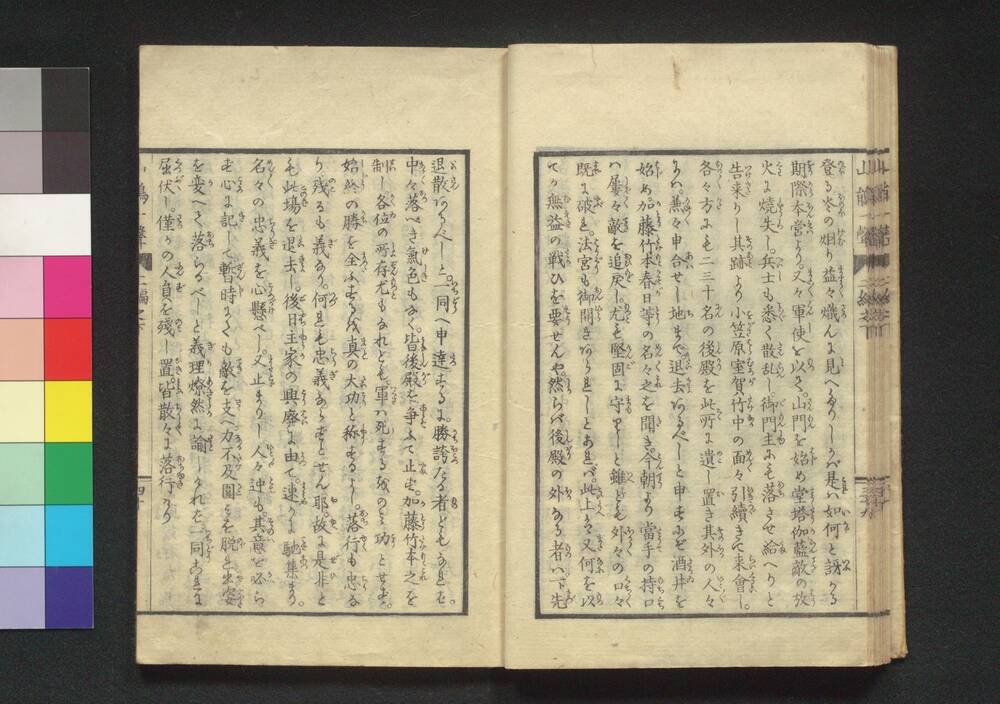 登る冬の烟り益々熾んに見へたりしかバ是ハ如何と訝かる
期際本営より又々軍使を以て山門を始め堂塔伽藍敵の放
火に焼失し。兵士も悉く散乱し。御門主にも落させ給へりと
告来りし其跡より小笠原室賀竹中の面々引續きて来會し。
各々方にも二三十名の後殿を此所に遺し置き其外の人々
にハ。兼々申合せし地まで退去あるべしと申すにぞ酒井を
始め加藤竹本春日等の名々之を聞き。今朝より當手の持口
ハ屢々敵を追戻し。尤も堅固に守りしと雖ども外々の口々
既に破れ。法宮も御開きありしとあれバ。此上ハ又何を以
てか無益の戦ひを要せんや。然らバ後殿の外なる者ハ一ト先
退散あるべしと。一同へ申達するに勝誇たる者どもなれバ。
中々落べき氣色もなく。皆後殿を争ふて止ず。加藤竹本之を
制し各位の所存尤もなれども。軍ハ死するをのミ功とせず。
始終の勝を全ふするを真の大功と称するよし。落行も忠な
り残るも義なり。何れも忠義ならずとせん耶。故に是非と
も此場を退去し。後日主家の興廢に由て速かに馳集まり。
名々の忠義を心懸べし。又止まりし人々迚も。其意を必らず
心に記して暫時にても敵を支へ力不及圍ミを脱れ出姿
を変へて落らるべしと義理燎然に諭しけれバ。一同これに
屈伏し。僅かの人員を殘し置。皆散々に落行たり